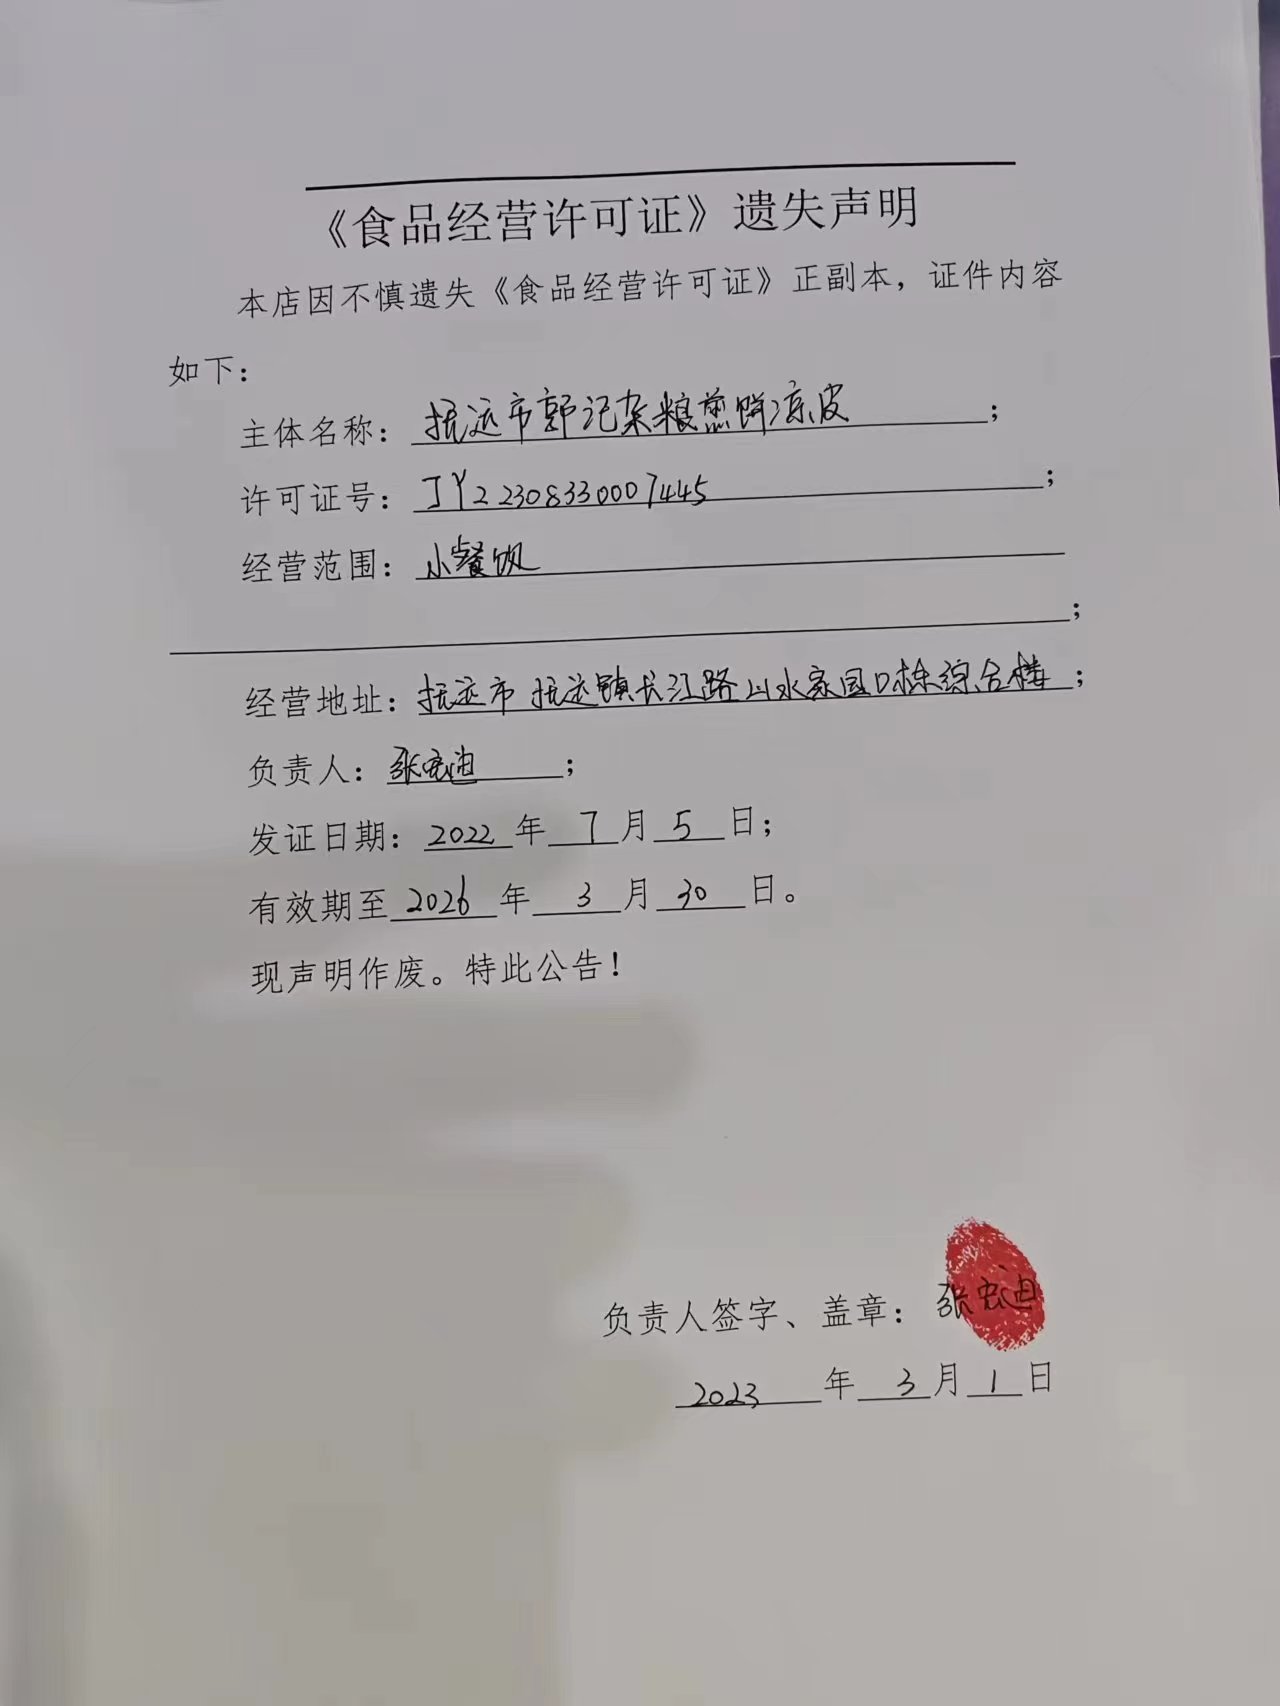 《食品经营许可证》遗失声明
本店因不慎遗失《食品经营许可证》正副本，证件内容
如下：
主体名称：抚远市郭记杂粮煎饼凉皮；
许可证号：JY22308330007445；
经营范围：小餐饮
；
经营地址：抚远市抚远镇长江路山水家园D栋综合楼；
负责人：张宏迪；
发证日期：2022年7月5日；
有效期至2026年3月30日。
现声明作废。特此公告！
负责人签字、盖章：张宏迪
2023年3月1日